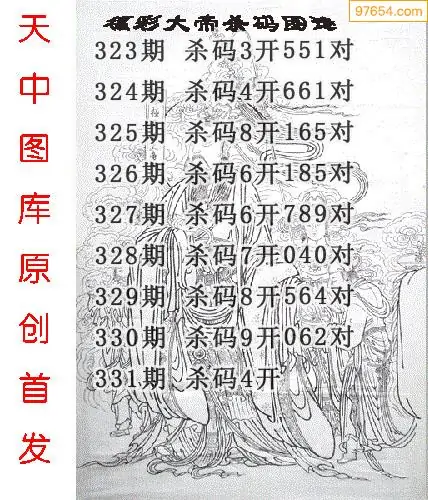 97654.com
福彩大帝杀码图迷
323期 杀码3开551对
324期 杀码4开661对
325期 杀码8开165对
326期 杀码6开185对
327期 杀码6开789对
328期 杀码7开040对
329期 杀码8开564对
330期 杀码9开062对
331期 杀码4开
天中图库原创首发